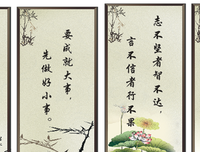 志不坚者智不达，
言不信者行不果
要成就大事，
先做好小事。